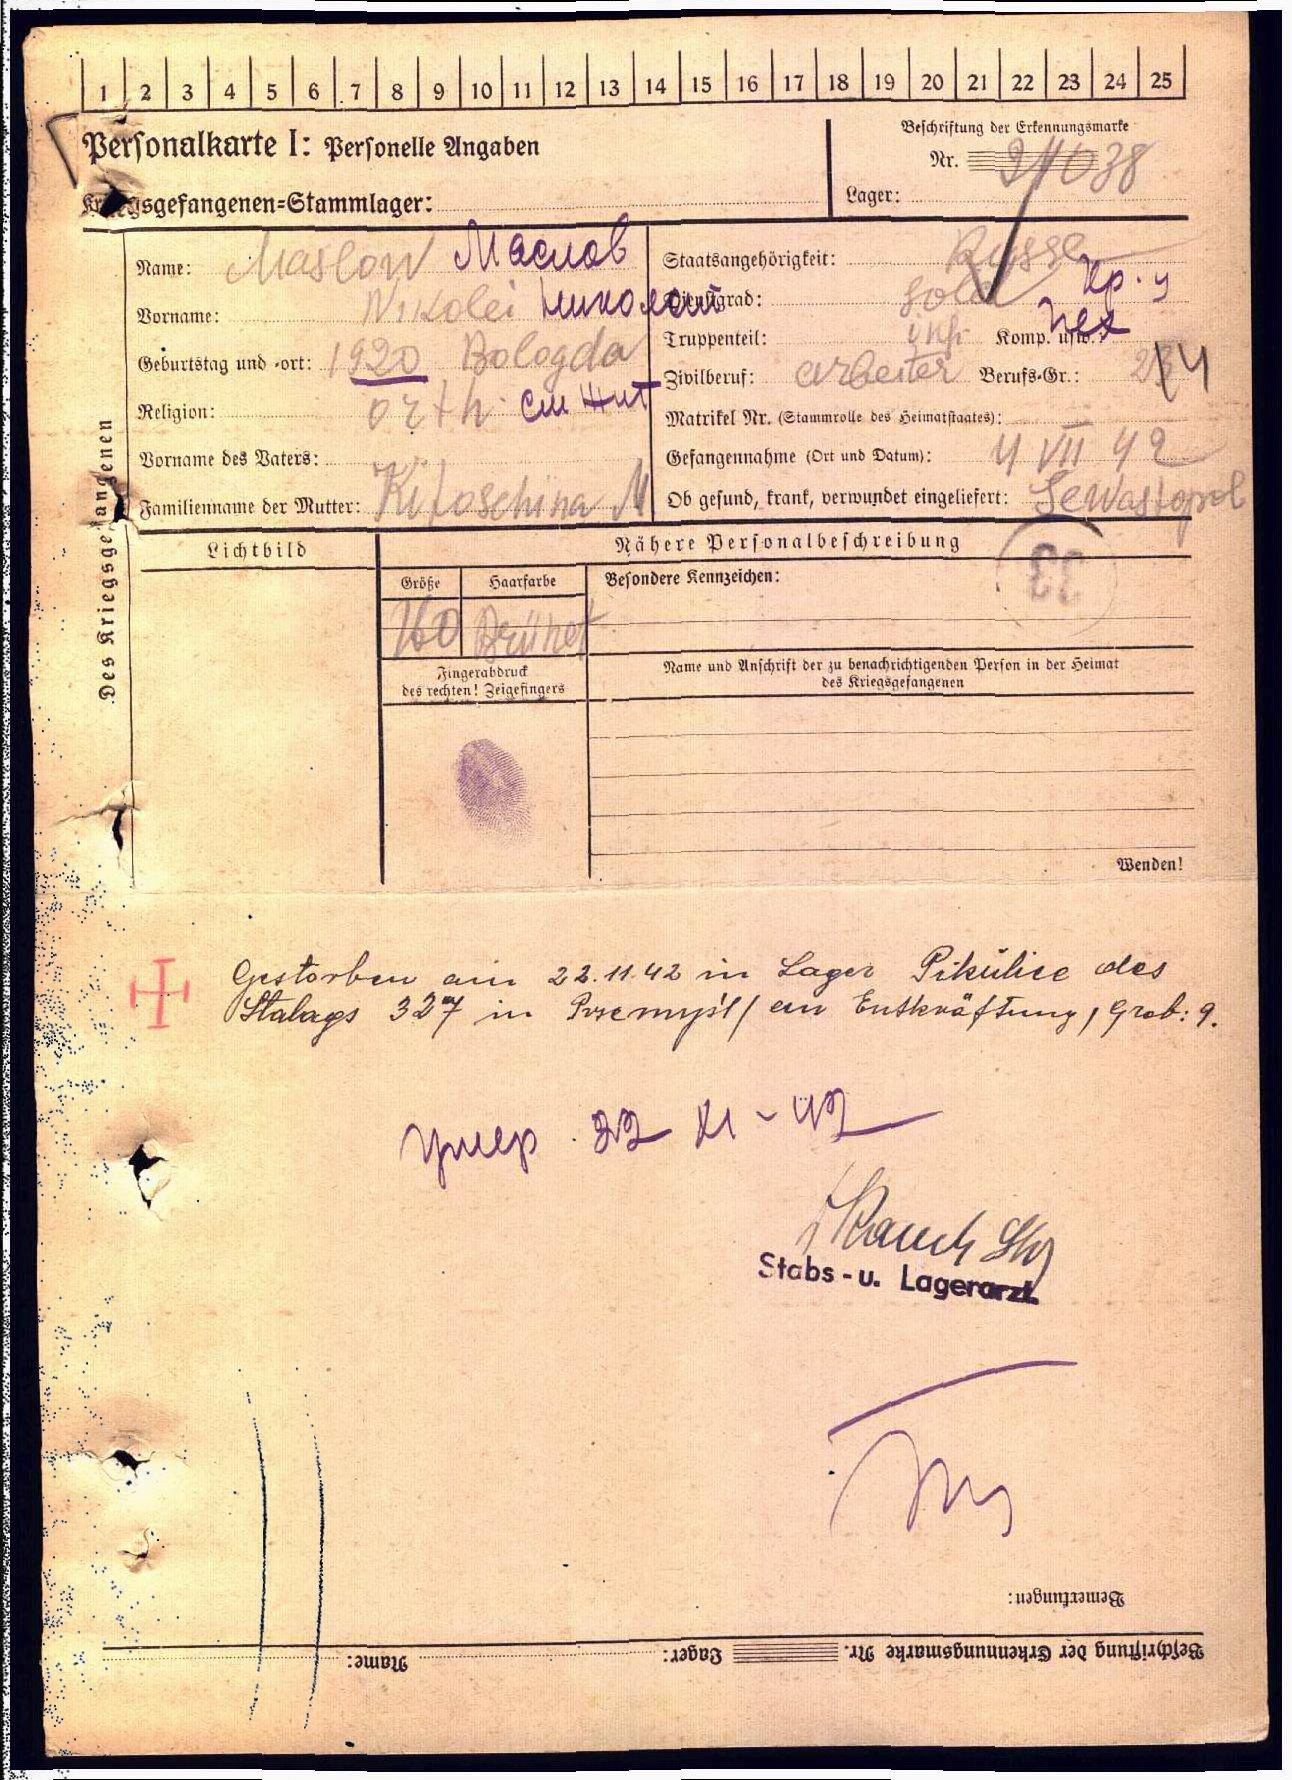 1 2 3 4 5 6 7 8 9 10 11 12 13 14 15 16 17 18 19 20 21 22 23 24 25
Personalkarte I: Personelle Angaben
Beschriftung der Erkennungsmarke
Nr. 21038
Kriegsgefangenen=Stammlager:
Lager:
Des Kriegsgefangenen
Name: Maslow Маслов
Vorname: Nikolei Николай
Geburtstag und -ort: 1920 Bologda
Religion: orth.
Vorname des Vaters:
Familienname der Mutter: M
Staatsangehörigkeit: Russe
Dienstgrad: Sold Кр-ц
Truppenteil: inf. Komp. usw.:
Zivilberuf: arbeiter Berufs-Gr.: 4
Matrikel Nr. (Stammrolle des Heimatstaates):
Gefangennahme (Ort und Datum): 4 VII 42
Ob gesund, krank, verwundet eingeliefert: Sewastopol
Lichtbild
Nähere Personalbeschreibung
Größe Haarfarbe
160 Brünet
Besondere Kennzeichen:
Fingerabdruck
des rechten! Zeigefingers
Name und Anschrift der zu benachrichtigenden Person in der Heimat
des Kriegsgefangenen
Wenden!
Gestorben am 22.11.42 in Lager Pikülice des
Stalags 327 in Przemyśl / an Entkräftung, Grab: 9.
умер 22 XI - 42
Stabs- u. Lagerarzt.
Bemerkungen:
Beschriftung der Erkennungsmarke Nr. Lager: Name: